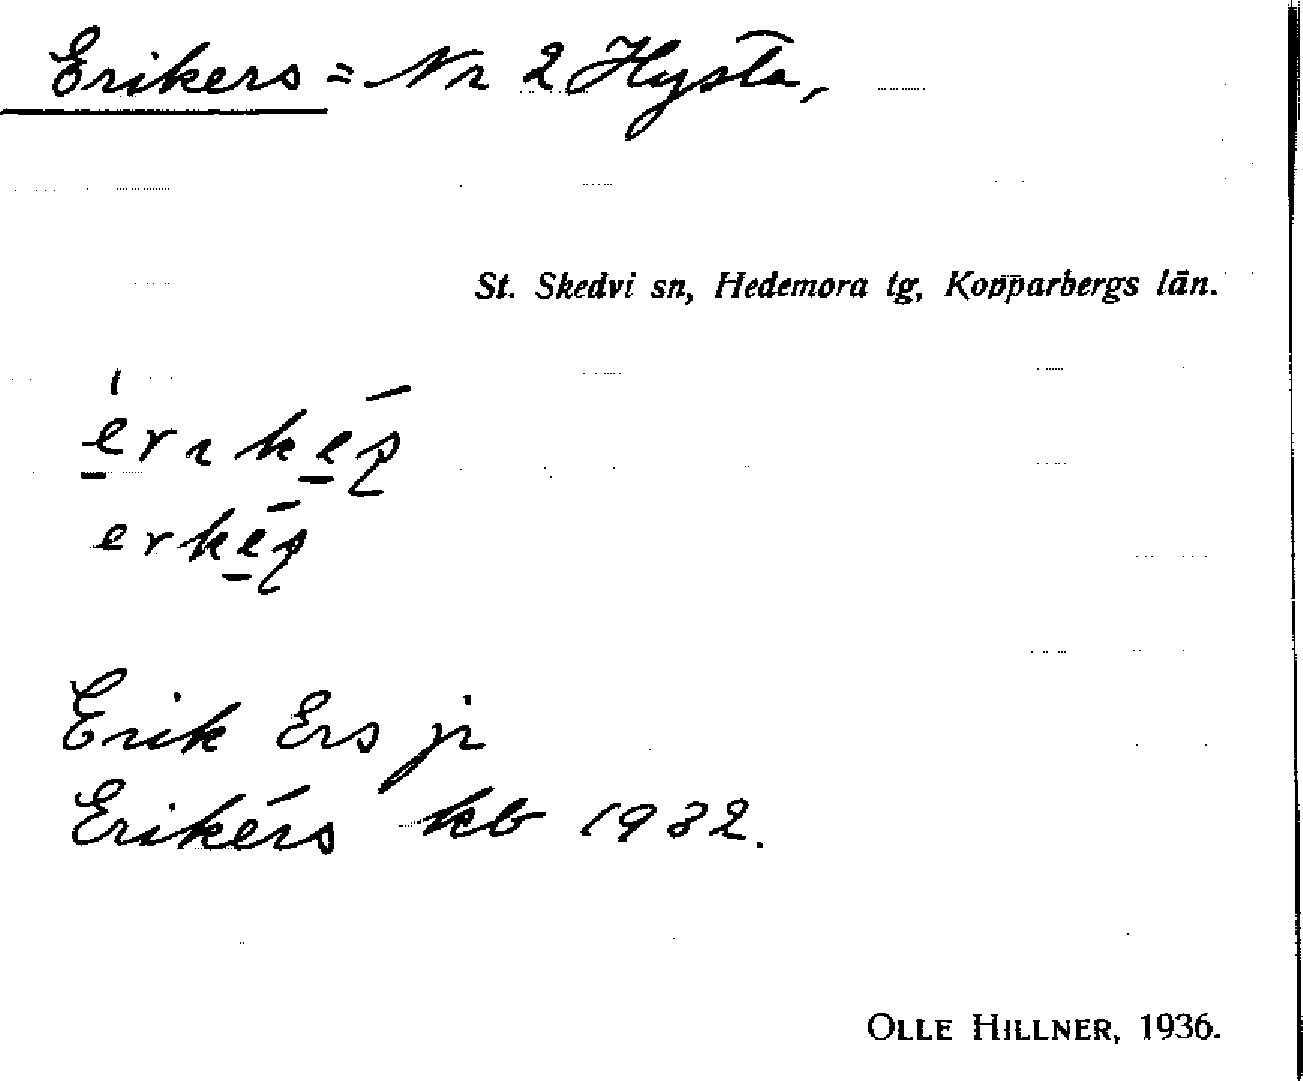 Erikers = Nr 2 Hysta,
St. Skedvi sn, Hedemora tg, Kopparbergs län.
Erik Ers jr
Erikérs kb 1932.
OLLE HILLNER, 1936.